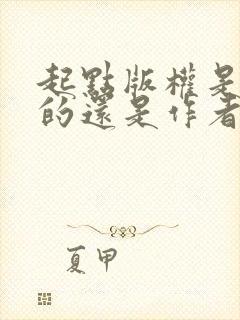 起點版權是
的還是作者
夏甲